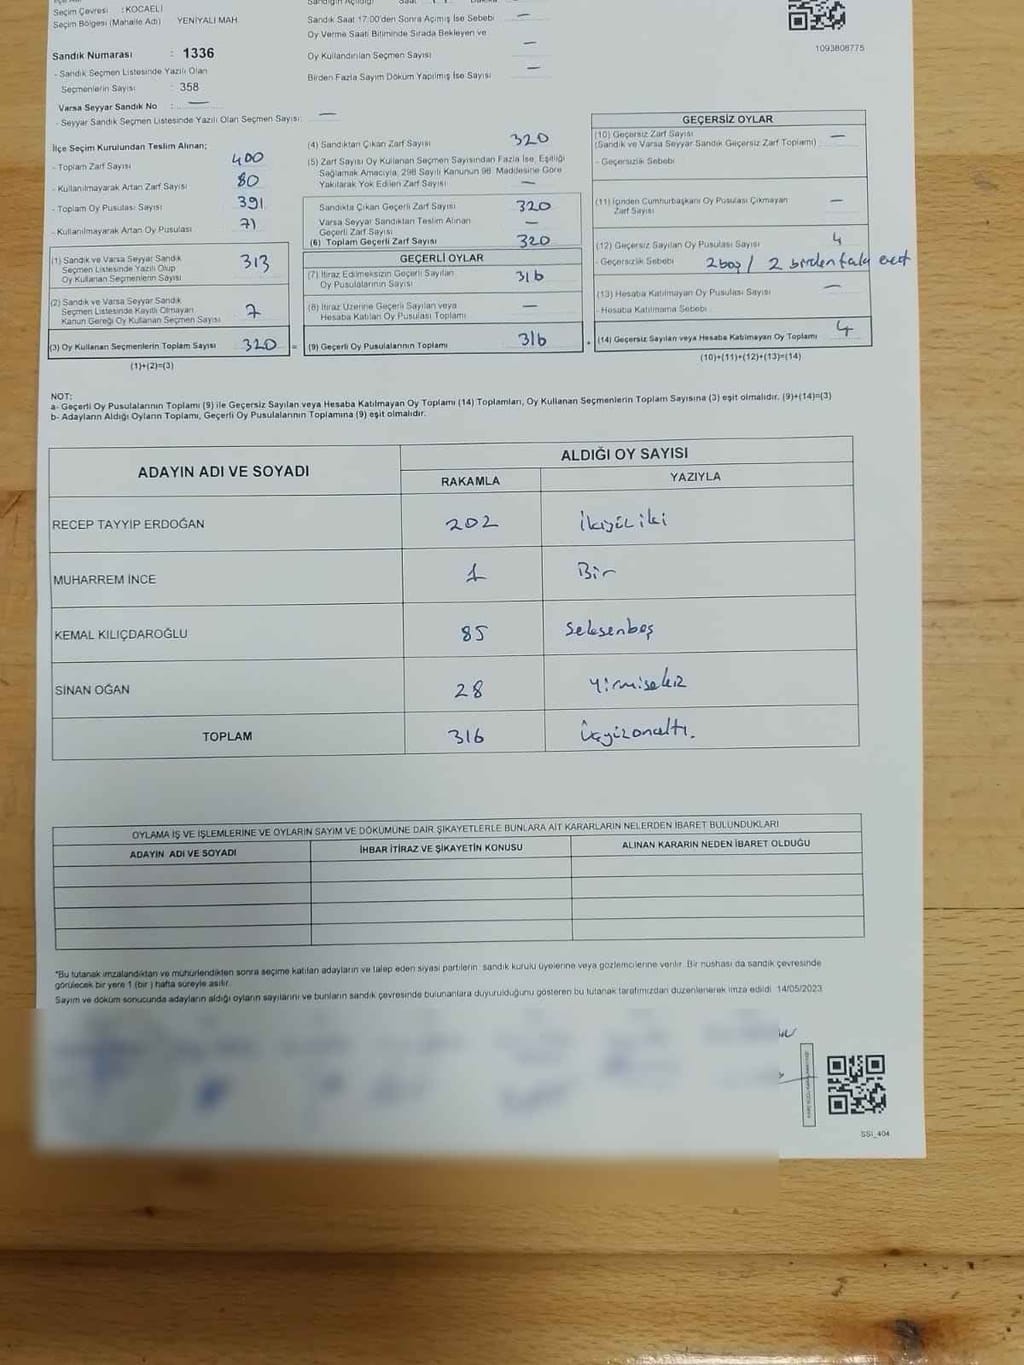 Seçim Çevresi : KOCAELİ
Seçim Bölgesi (Mahalle Adı) YENİYALI MAH.
Sandık Numarası : 1336
- Sandık Seçmen Listesinde Yazılı Olan
Seçmenlerin Sayısı : 358
Varsa Seyyar Sandık No : —
- Seyyar Sandık Seçmen Listesinde Yazılı Olan Seçmen Sayısı: —
Sandık Saat 17:00'den Sonra Açımış İse Sebebi —
Oy Verme Saati Bitiminde Sırada Bekleyen ve
Oy Kullandırılan Seçmen Sayısı —
Birden Fazla Sayım Döküm Yapılmış İse Sayısı —
1093808775
İlçe Seçim Kurulundan Teslim Alınan;
- Toplam Zarf Sayısı 400
- Kullanılmayarak Artan Zarf Sayısı 80
- Toplam Oy Pusulası Sayısı 391
- Kullanılmayarak Artan Oy Pusulası 71
(1) Sandık ve Varsa Seyyar Sandık
Seçmen Listesinde Yazılı Olup
Oy Kullanan Seçmenlerin Sayısı 313
(2) Sandık ve Varsa Seyyar Sandık
Seçmen Listesinde Kayıtlı Olmayan
Kanun Gereği Oy Kullanan Seçmen Sayısı 7
(3) Oy Kullanan Seçmenlerin Toplam Sayısı 320 =
(1)+(2)=(3)
(4) Sandıktan Çıkan Zarf Sayısı 320
(5) Zarf Sayısı Oy Kullanan Seçmen Sayısından Fazla İse, Eşitliği
Sağlamak Amacıyla, 298 Sayılı Kanunun 98. Maddesine Göre
Yakılarak Yok Edilen Zarf Sayısı —
Sandıkta Çıkan Geçerli Zarf Sayısı 320
Varsa Seyyar Sandıktan Teslim Alınan
Geçerli Zarf Sayısı —
(6) Toplam Geçerli Zarf Sayısı 320
GEÇERLİ OYLAR
(7) İtiraz Edilmeksizin Geçerli Sayılan
Oy Pusulalarının Sayısı 316
(8) İtiraz Üzerine Geçerli Sayılan veya
Hesaba Katılan Oy Pusulası Toplamı —
(9) Geçerli Oy Pusulalarının Toplamı 316 +
GEÇERSİZ OYLAR
(10) Geçersiz Zarf Sayısı —
(Sandık ve Varsa Seyyar Sandık Geçersiz Zarf Toplamı)
- Geçersizlik Sebebi
(11) İçinden Cumhurbaşkanı Oy Pusulası Çıkmayan
Zarf Sayısı —
(12) Geçersiz Sayılan Oy Pusulası Sayısı 4
- Geçersizlik Sebebi 2 boş / 2 birden fala evet
(13) Hesaba Katılmayan Oy Pusulası Sayısı —
- Hesaba Katılmama Sebebi
(14) Geçersiz Sayılan veya Hesaba Katılmayan Oy Toplamı 4
(10)+(11)+(12)+(13)=(14)
NOT:
a- Geçerli Oy Pusulalarının Toplamı (9) ile Geçersiz Sayılan veya Hesaba Katılmayan Oy Toplamı (14) Toplamları, Oy Kullanan Seçmenlerin Toplam Sayısına (3) eşit olmalıdır. (9)+(14)=(3)
b- Adayların Aldığı Oyların Toplamı, Geçerli Oy Pusulalarının Toplamına (9) eşit olmalıdır.
ADAYIN ADI VE SOYADI
ALDIĞI OY SAYISI
RAKAMLA YAZIYLA
RECEP TAYYİP ERDOĞAN 202 İkiyüziki
MUHARREM İNCE 1 Bir
KEMAL KILIÇDAROĞLU 85 Seksenbeş
SİNAN OĞAN 28 Yirmisekiz
TOPLAM 316 Üçyüzonaltı.
OYLAMA İŞ VE İŞLEMLERİNE VE OYLARIN SAYIM VE DÖKÜMÜNE DAİR ŞİKAYETLERLE BUNLARA AİT KARARLARIN NELERDEN İBARET BULUNDUKLARI
ADAYIN ADI VE SOYADI İHBAR İTİRAZ VE ŞİKAYETİN KONUSU ALINAN KARARIN NEDEN İBARET OLDUĞU
*Bu tutanak imzalandıktan ve mühürlendikten sonra seçime katılan adayların ve talep eden siyasi partilerin sandık kurulu üyelerine veya gözlemcilerine verilir. Bir nüshası da sandık çevresinde
görülecek bir yere 1 (bir) hafta süreyle asılır.
Sayım ve döküm sonucunda adayların aldığı oyların sayılarını ve bunların sandık çevresinde bulunanlara duyurulduğunu gösteren bu tutanak tarafımızdan düzenlenerek imza edildi. 14/05/2023
SSİ_404